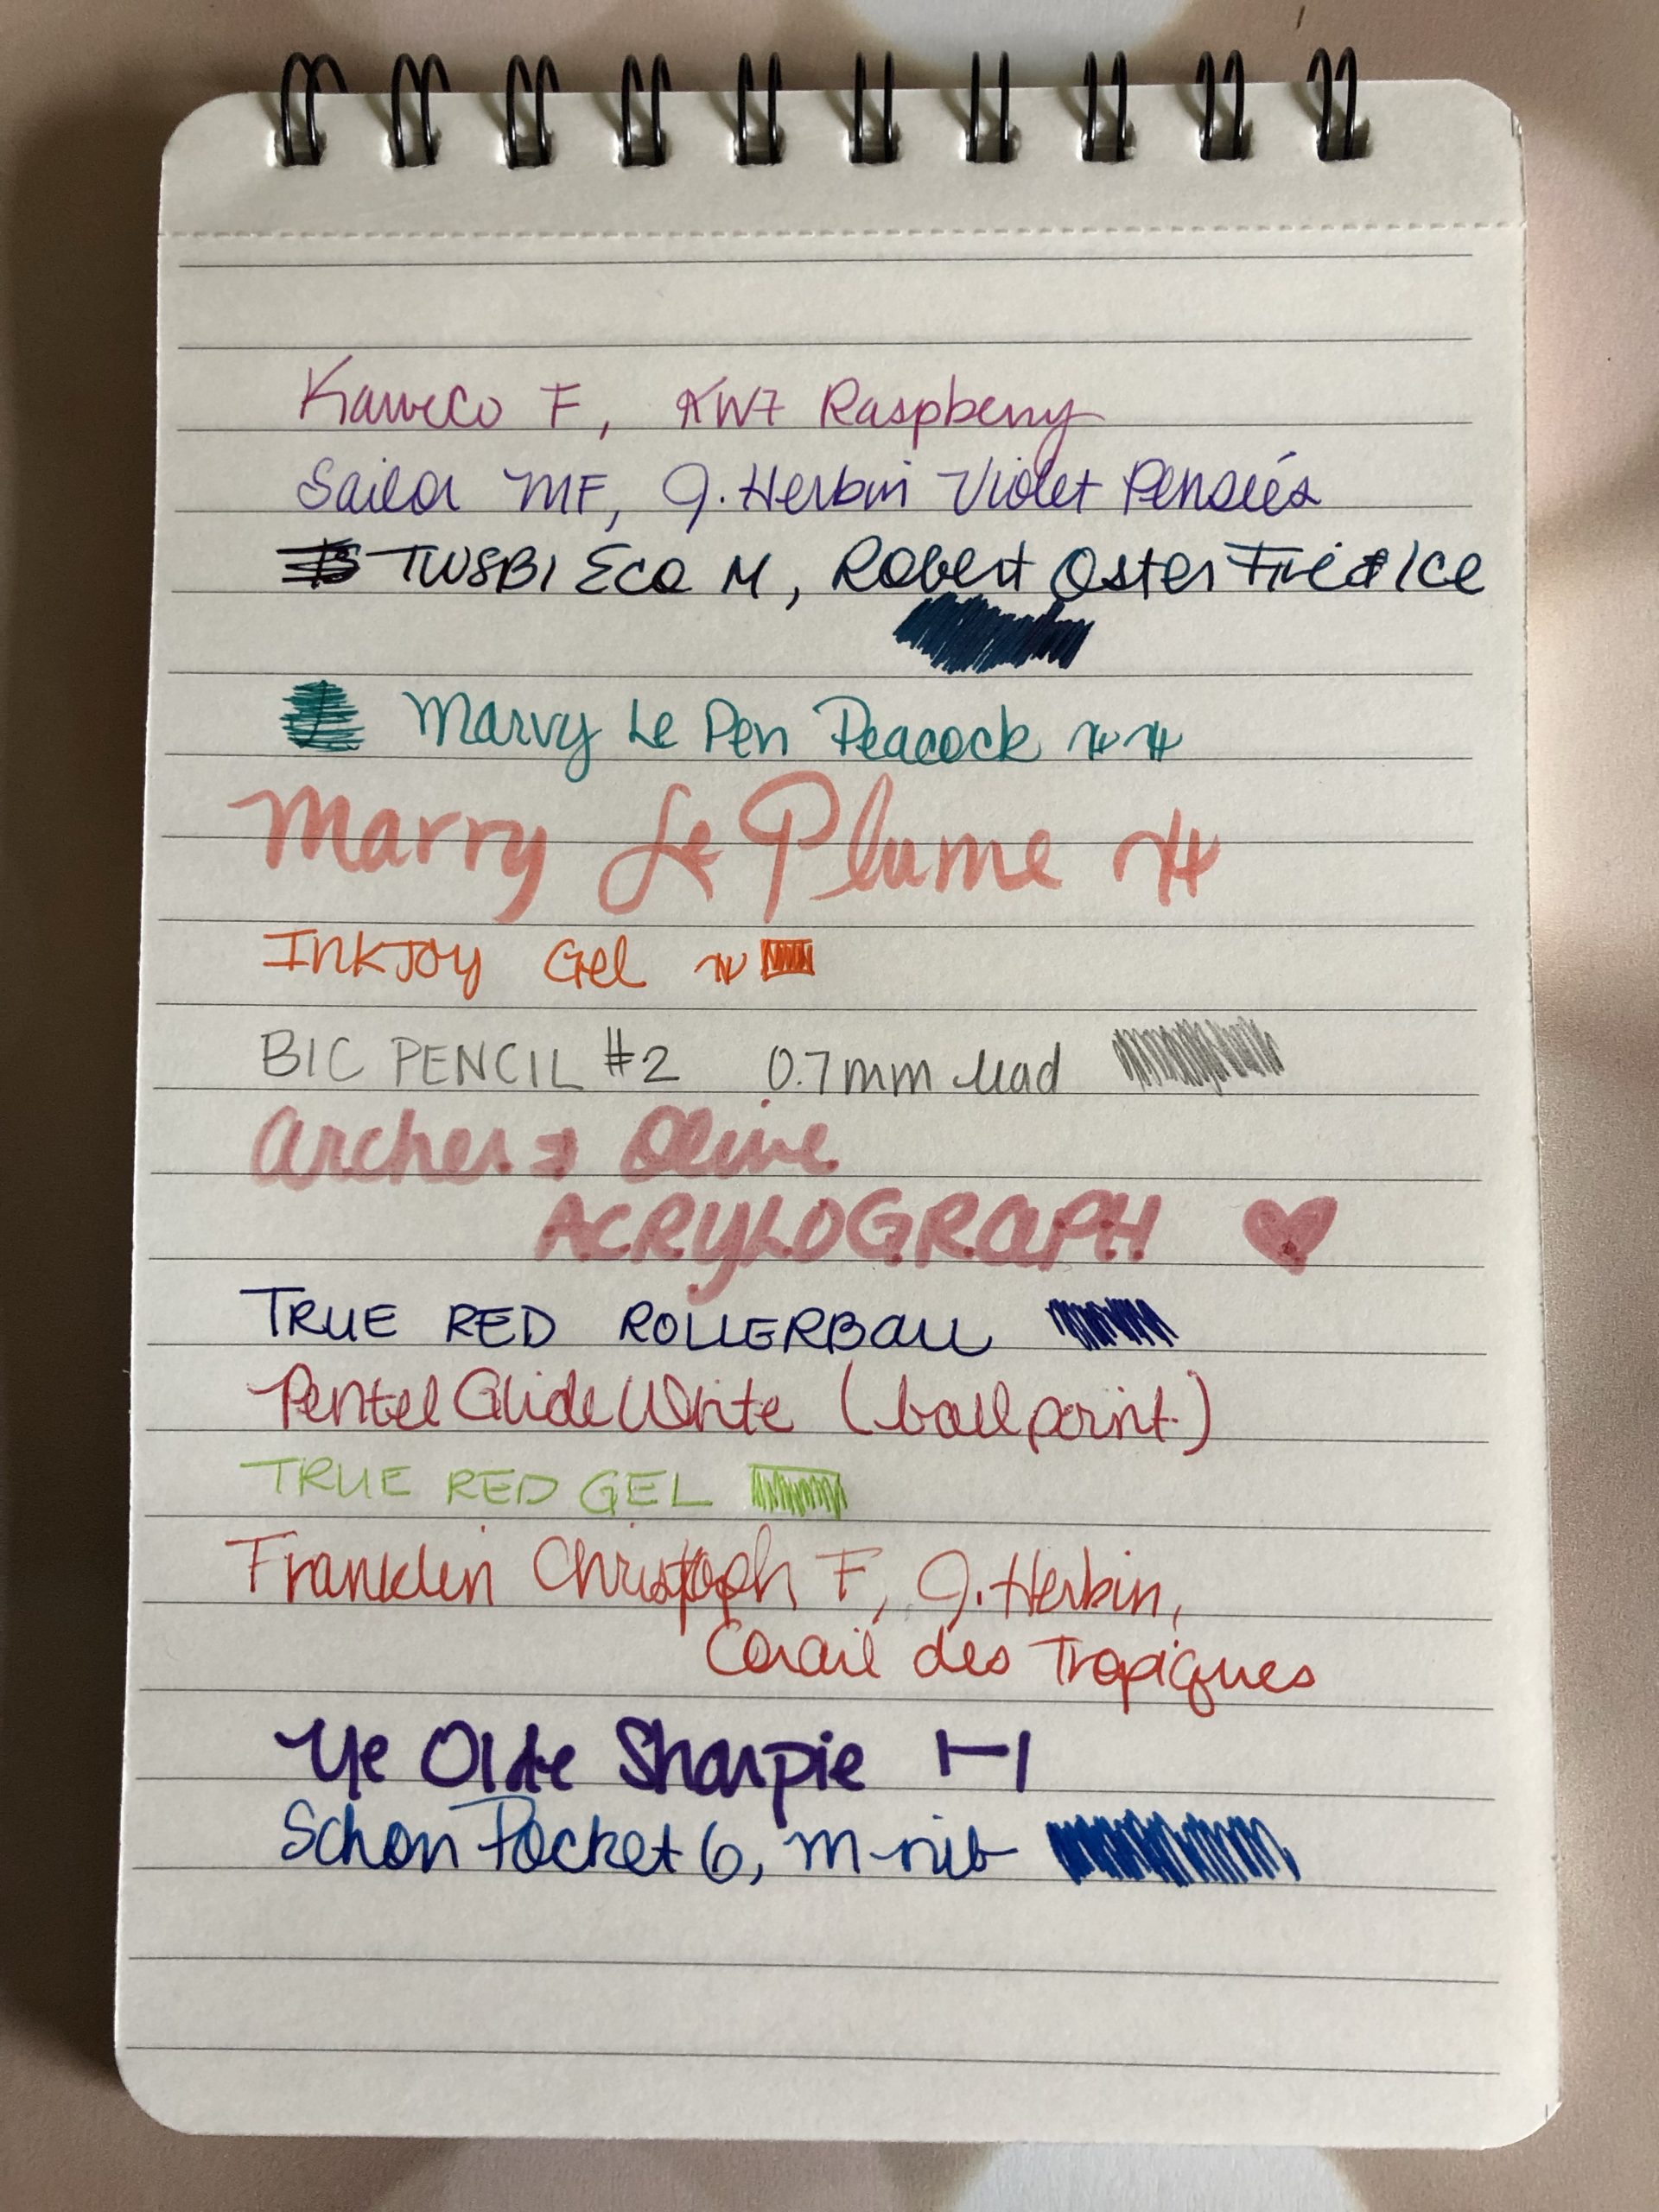 Kaweco F, KWZ Raspberry
Sailor MF, J. Herbin Violet Pensées
TWSBI Eco M, Robert Oster Fire & Ice
Marvy Le Pen Peacock
Marvy Le Plume
InkJoy Gel
BIC PENCIL #2 0.7mm lead
Archer & Olive
ACRYLOGRAPH
TRUE RED ROLLERBALL
Pentel Glide Write (ballpoint)
TRUE RED GEL
Franklin Christoph F, J. Herbin,
Corail des Tropiques
Ye Olde Sharpie
Schon Pocket 6, m-nib